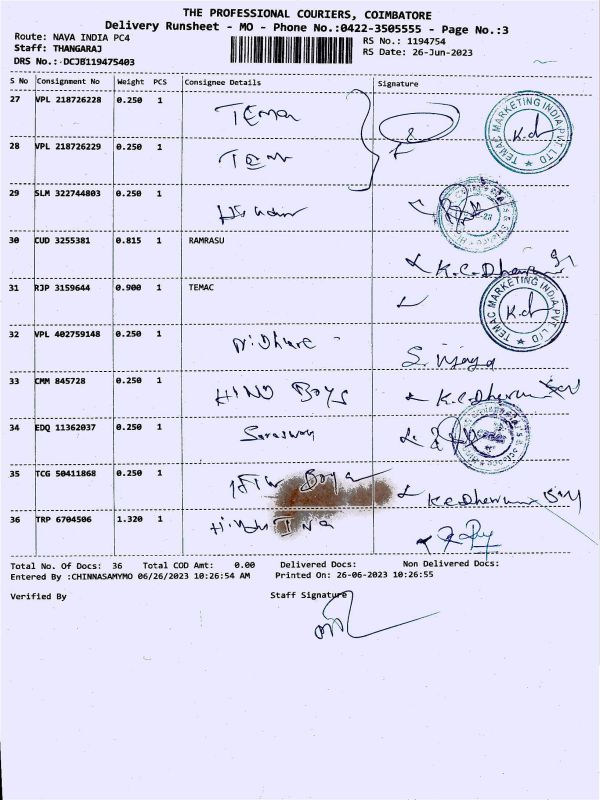 THE PROFESSIONAL COURIERS, COIMBATORE
Delivery Runsheet - MO - Phone No.:0422-3505555 - Page No.:3
Route: NAVA INDIA PC4 RS No.: 1194754
Staff: THANGARAJ RS Date: 26-Jun-2023
DRS No.: DCJB119475403
S No Consignment No Weight PCS Consignee Details Signature
27 VPL 218726228 0.250 1 Temac
TEMAC MARKETING INDIA PVT. LTD
28 VPL 218726229 0.250 1
29 SLM 322744803 0.250 1
30 CUD 3255381 0.815 1 RAMRASU K.C. Dhevan
31 RJP 3159644 0.900 1 TEMAC
TEMAC MARKETING INDIA PVT. LTD
32 VPL 402759148 0.250 1 S. Vijaya
33 CMM 845728 0.250 1 HIND Boys K.C. Dhevan
34 EDQ 11362037 0.250 1 Saraswathi
35 TCG 50411868 0.250 1 K.C. Dhevan
36 TRP 6704506 1.320 1
Total No. Of Docs: 36 Total COD Amt: 0.00 Delivered Docs: Non Delivered Docs:
Entered By :CHINNASAMYMO 06/26/2023 10:26:54 AM Printed On: 26-06-2023 10:26:55
Verified By Staff Signature